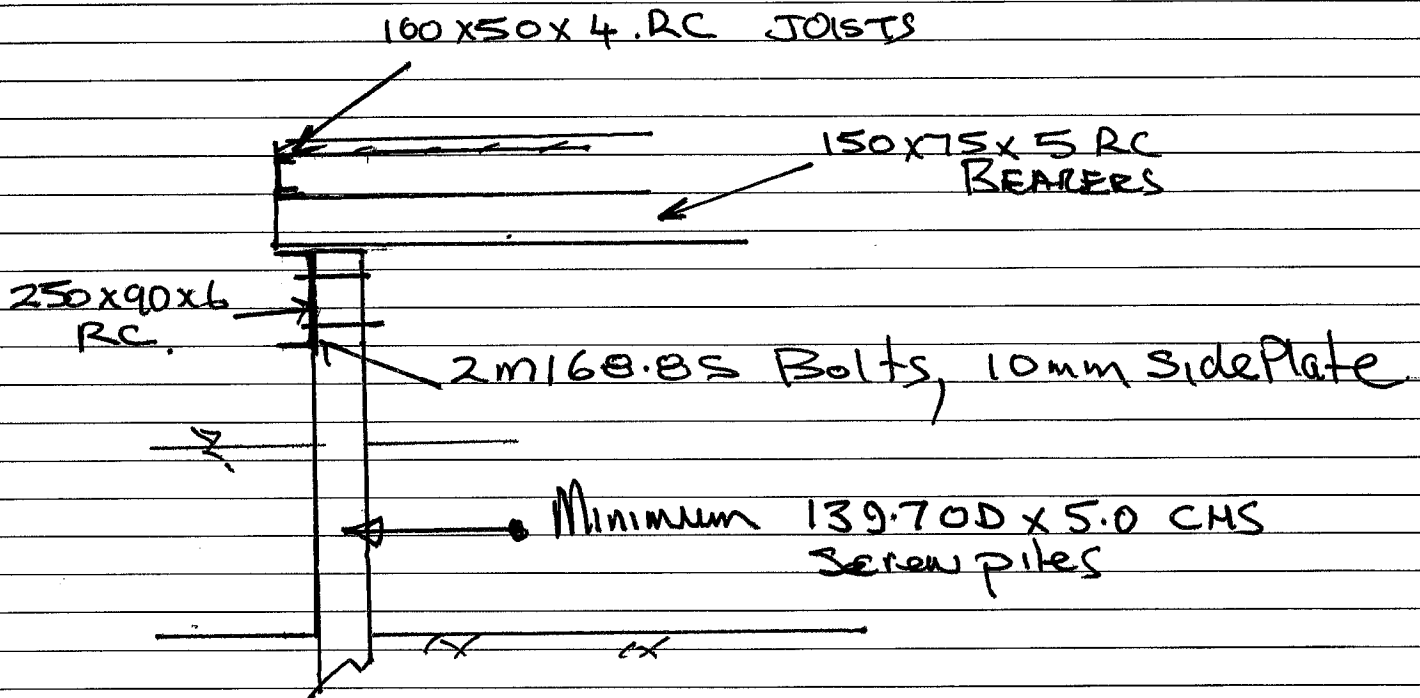 100x50x4.RC JOISTS
150x75x5 RC
BEARERS
250x90x6
RC.
2m168.8S Bolts, 10mm SidePlate
Minimum 139.7OD x 5.0 CHS
Screw piles